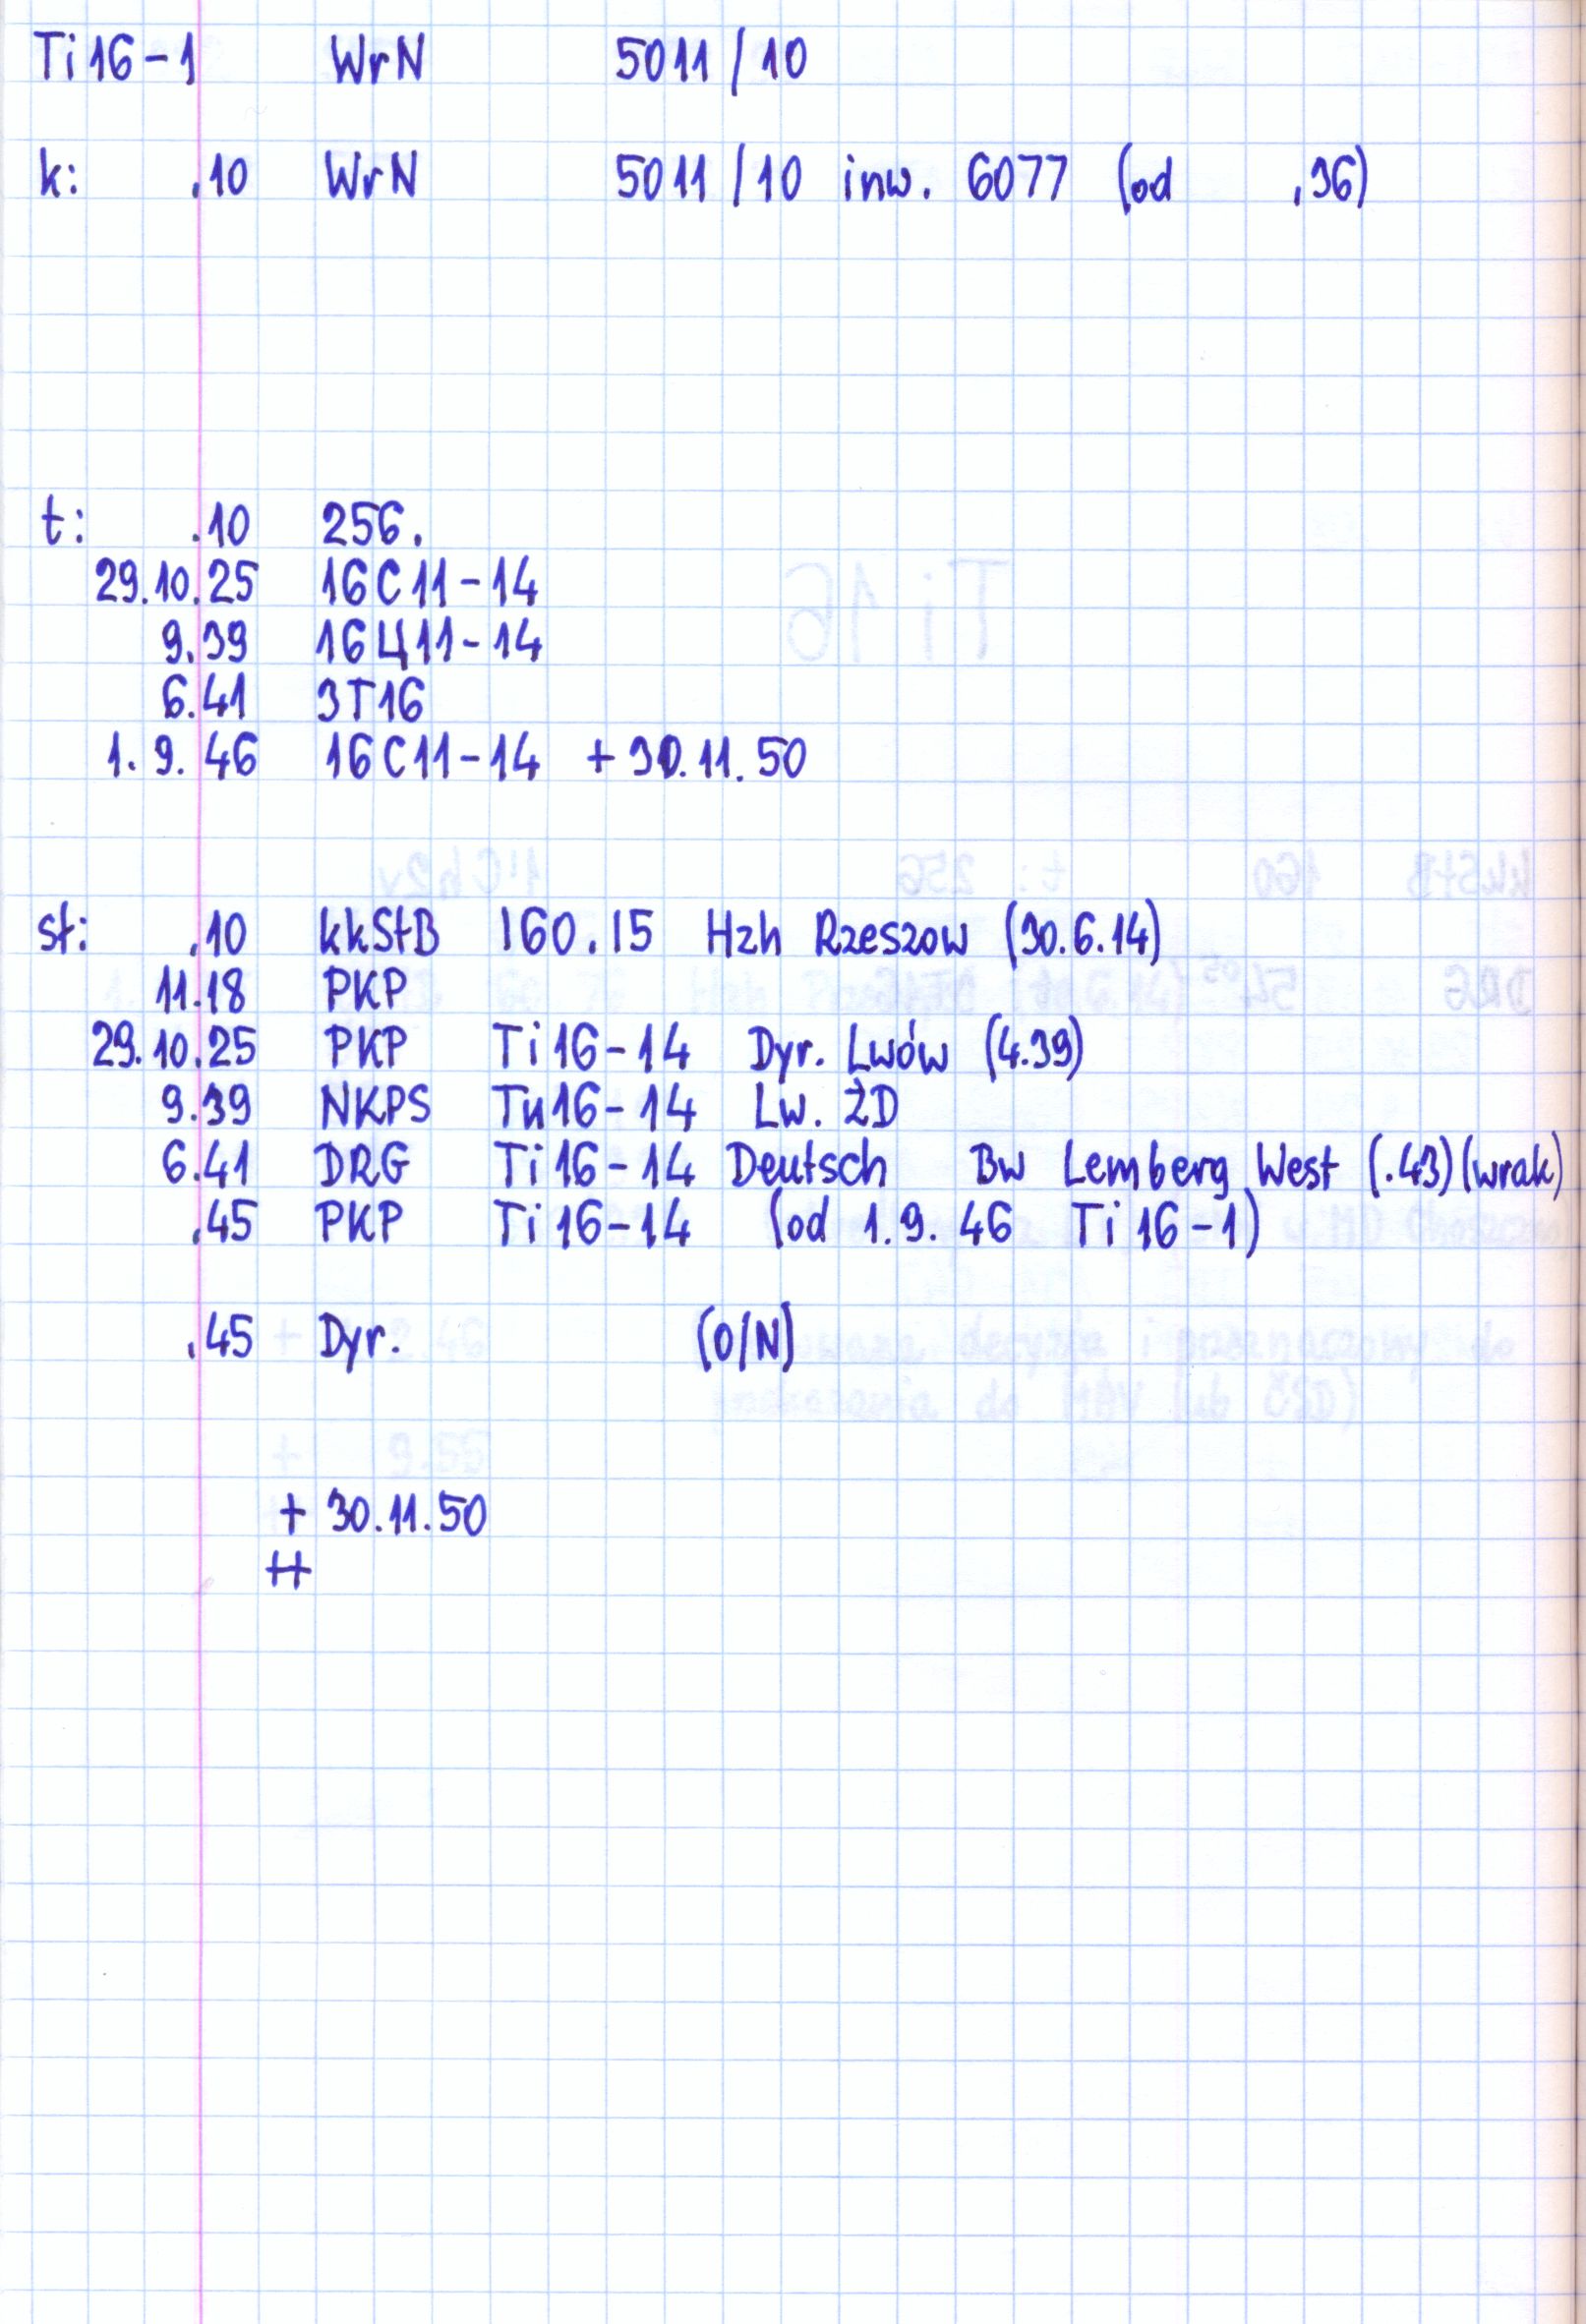 Ti 16-1 WrN 5011/10
k: .10 WrN 5011/10 inw. 6077 (od .36)
t: .10 256.
29.10.25 16C11-14
9.39 16Ц11-14
6.41 3T16
1.9.46 16C11-14 +30.11.50
st: .10 kkStB 160.15 Hzh Rzeszow (30.6.14)
11.18 PKP
29.10.25 PKP Ti16-14 Dyr. Lwów (4.39)
9.39 NKPS Tи16-14 Lw. ŻD
6.41 DRG Ti16-14 Deutsch Bw Lemberg West (.43)(wrak)
.45 PKP Ti16-14 (od 1.9.46 Ti16-1)
.45 Dyr. (O/N)
+ 30.11.50
++